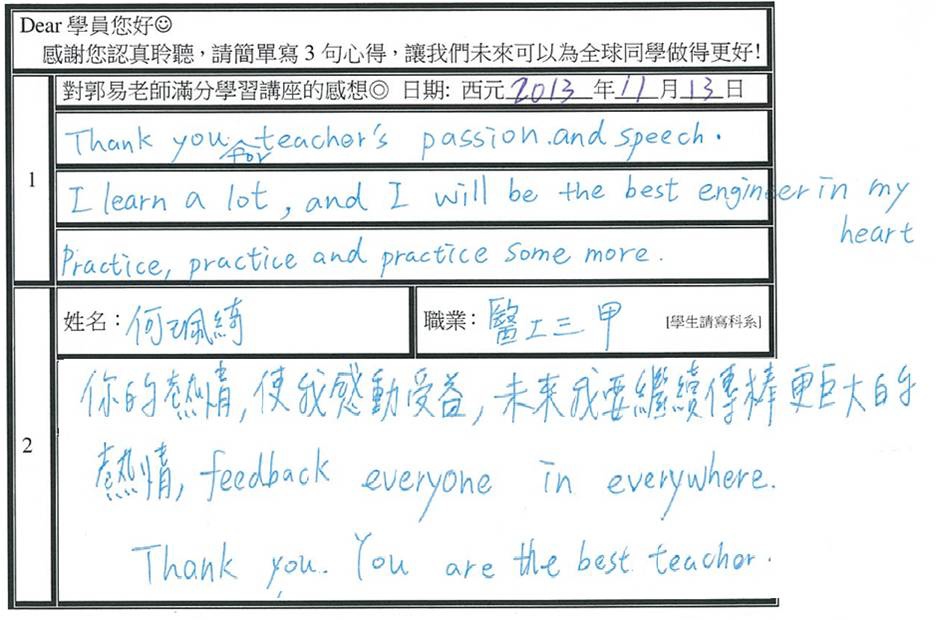 Dear 學員您好☺
感謝您認真聆聽，請簡單寫 3 句心得，讓我們未來可以為全球同學做得更好!
對郭易老師滿分學習講座的感想◎ 日期: 西元 2013 年 11 月 13 日
1
Thank you for teacher's passion and speech.
I learn a lot, and I will be the best engineer in my
heart
Practice, practice and practice some more.
姓名：何珮綺 職業：醫工三甲 [學生請寫科系]
2
你的熱情, 使我感動受益, 未來我要繼續傳棒更巨大的
熱情, feedback everyone in everywhere.
Thank you. You are the best teacher.